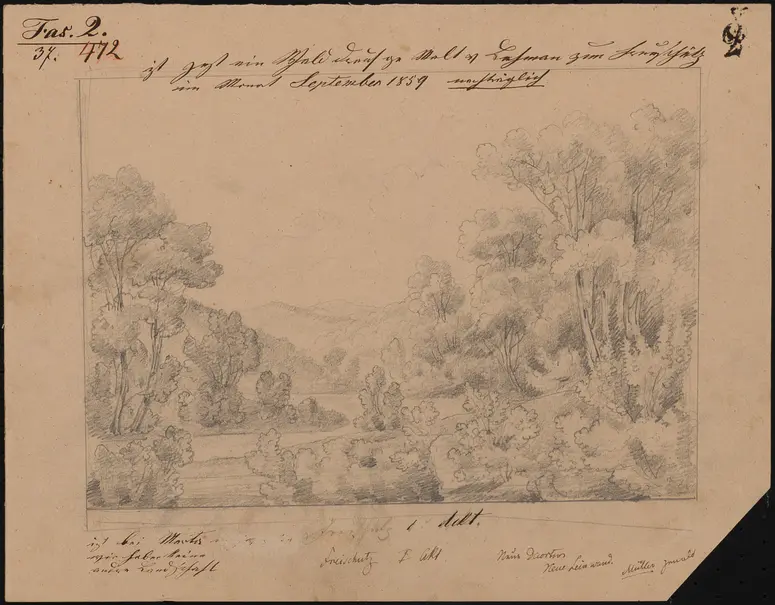 Fas. 2.
37. 472
2
ist jezt ein Wald durch ge Malt v Lehman zum Freyschütz
im Monat September 1859 nachträglich
Freischütz 1. Akt.
ist bei
wir haben keine
andre Landschaft
Freischutz I Akt
Neue
Neue Leinwand.
Müller gemalt